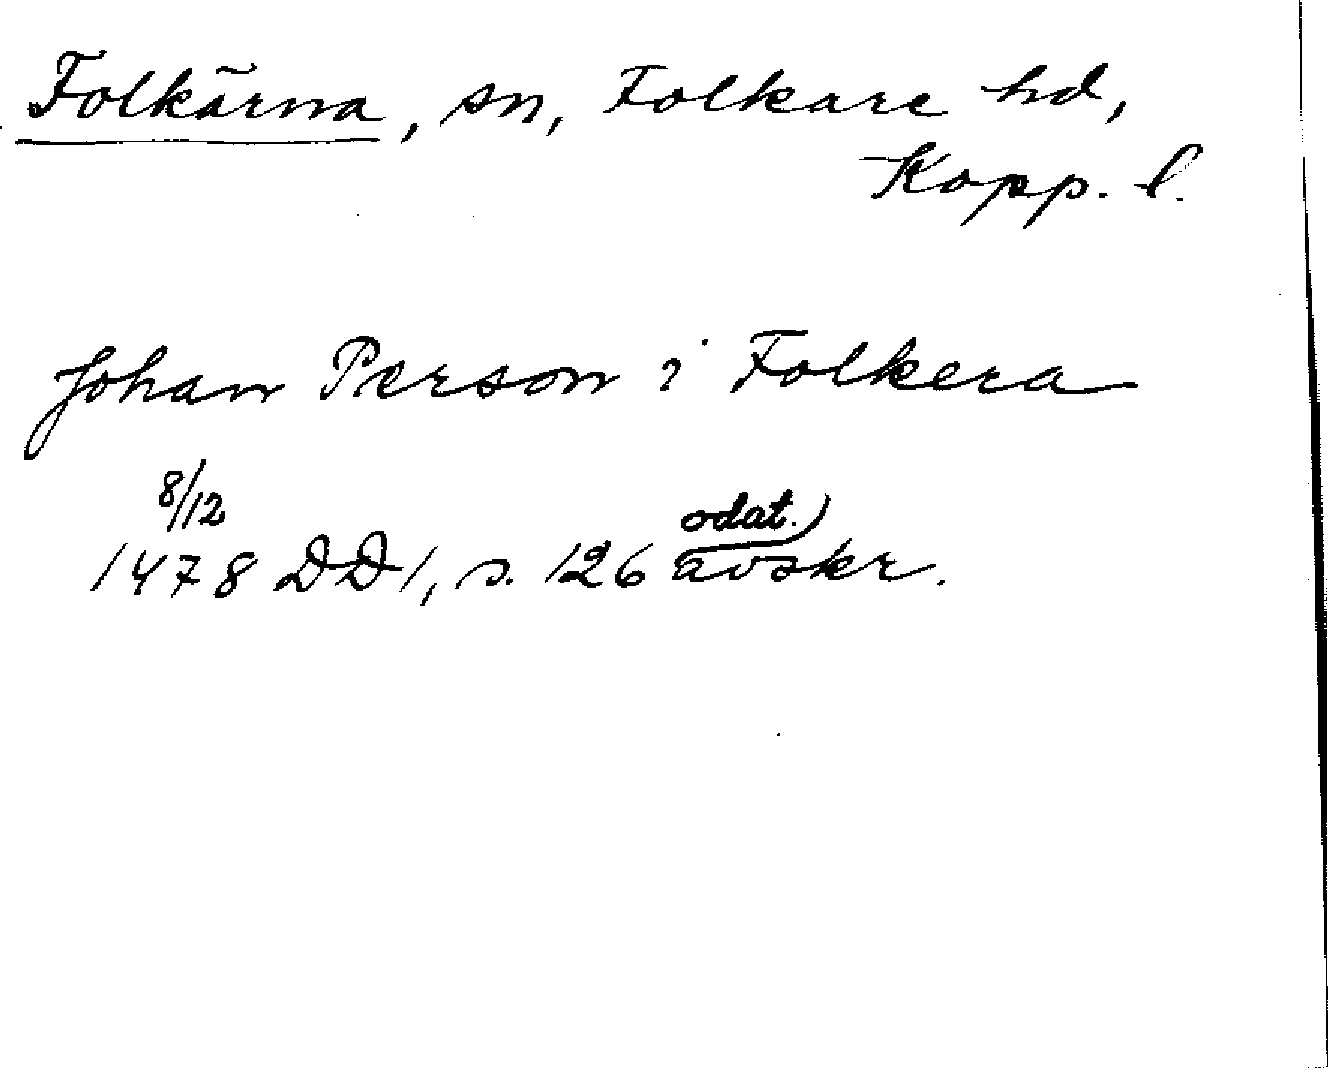 Folkärna, sn, Folkare hd,
Kopp. l.
Johan Person i Folkera
8/12
1478 DD1, s. 126 odat. avskr.